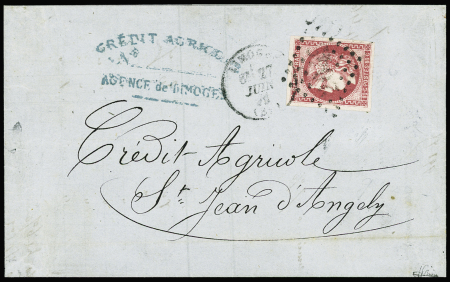 CRÉDIT AGRICOLE
AGENCE de LIMOGES
LIMOGES
27
JUIN
Crédit Agricole
St Jean d'Angely